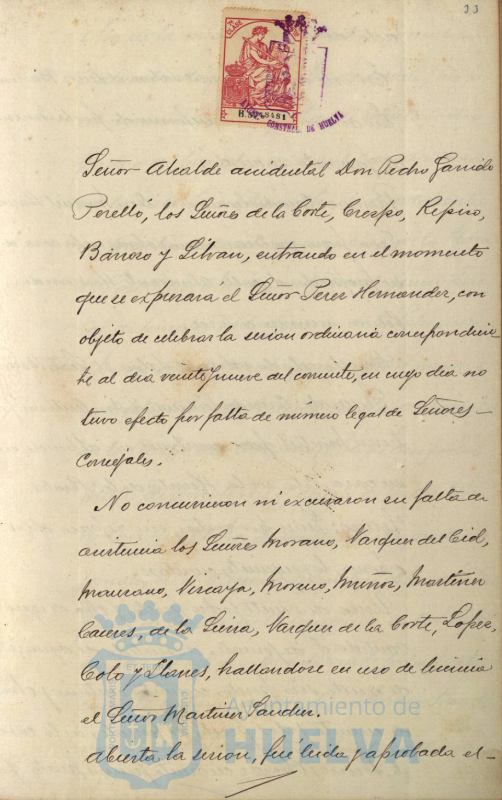 33
11ª CLASE
B.5048481
CONSTNAL. DE HUELVA
Señor Alcalde accidental Don Pedro Garrido
Perelló, los Señores de la Corte, Crespo, Repiso,
Bánoso y Silvan, entrando en el momento
que se expresará el Señor Perez Hernandez, con
objeto de celebrar la sesion ordinaria correspondien
te al dia veintinueve del corriente, en cuyo dia no
tuvo efecto por falta de número legal de Señores
Concejales.
No concurrieron ni excusaron su falta de
asistencia los Señores Morano, Vazquez del Cid,
Manzano, Vizcaya, Moreno, Muñoz, Martinez
Caceres, de la Sierra, Vazquez de la Corte, Lopez,
Colo y Llanes, hallandose en uso de licencia
el Señor Martinez Sanchez.
Abierta la sesion, fué leida y aprobada el
Ayuntamiento de
HUELVA